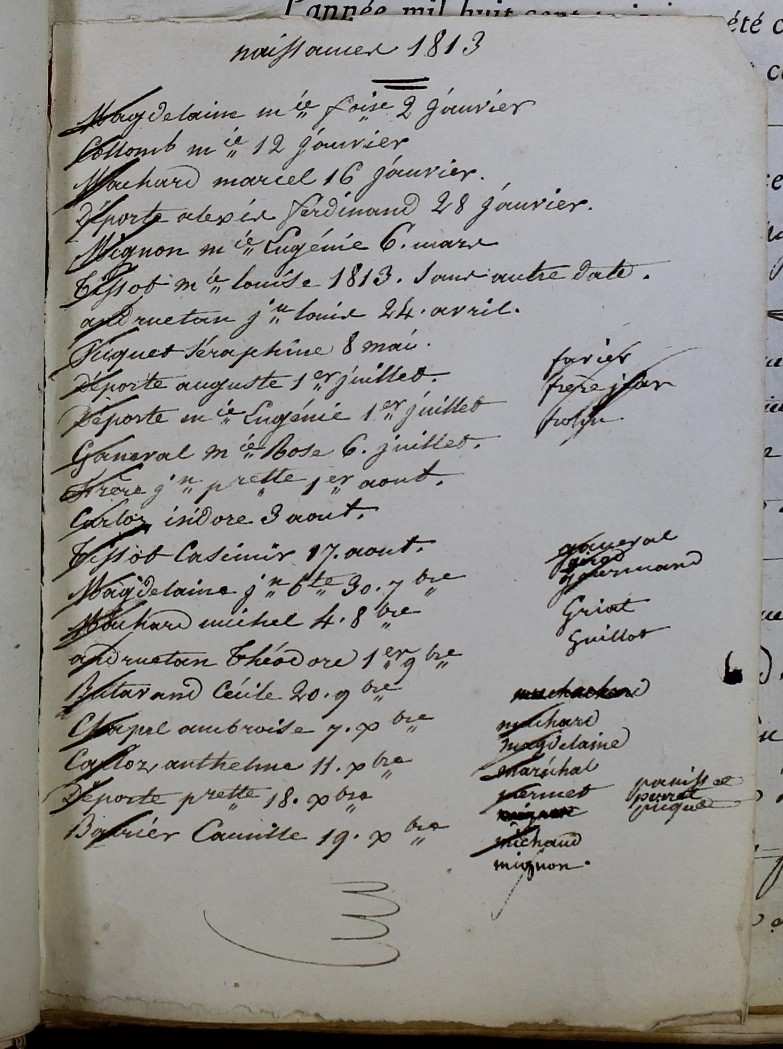 l'année mil huit cent
été
naissances 1813
Magdelaine mie foise 2 janvier
Collomb mie 12 janvier
Mochard marcel 16 janvier.
Déporte alexis ferdinand 28 janvier.
Mignon mie Eugénie 6. mars
Tissot mie louise 1813. sans autre date.
andructan jn louis 24. avril.
Piquet Séraphine 8 mai.
Déporte auguste 1er juillet.
Déporte mie Eugénie 1er juillet
Ganeval mie Rose 6. juillet.
Frère jn prette 1er aout.
Carloz isidore 3 aout.
Tissot Casimir 17. aout.
Magdelaine jn bte 30. 7bre
Mochard michel 4. 8bre
andructan Théodore 1er 9bre
Butavand Cécile 20. 9bre
Chapel ambroise 7. xbre
Carloz anthelme 11. xbre
Déporte prette 18. xbre
Barrier Camille 19. xbre
favier
frère jean
ganeval
gourmand
Griot
Guillot
mochard
magdelaine
maréchal
permet
mignon
michaud
mignon.
piquet